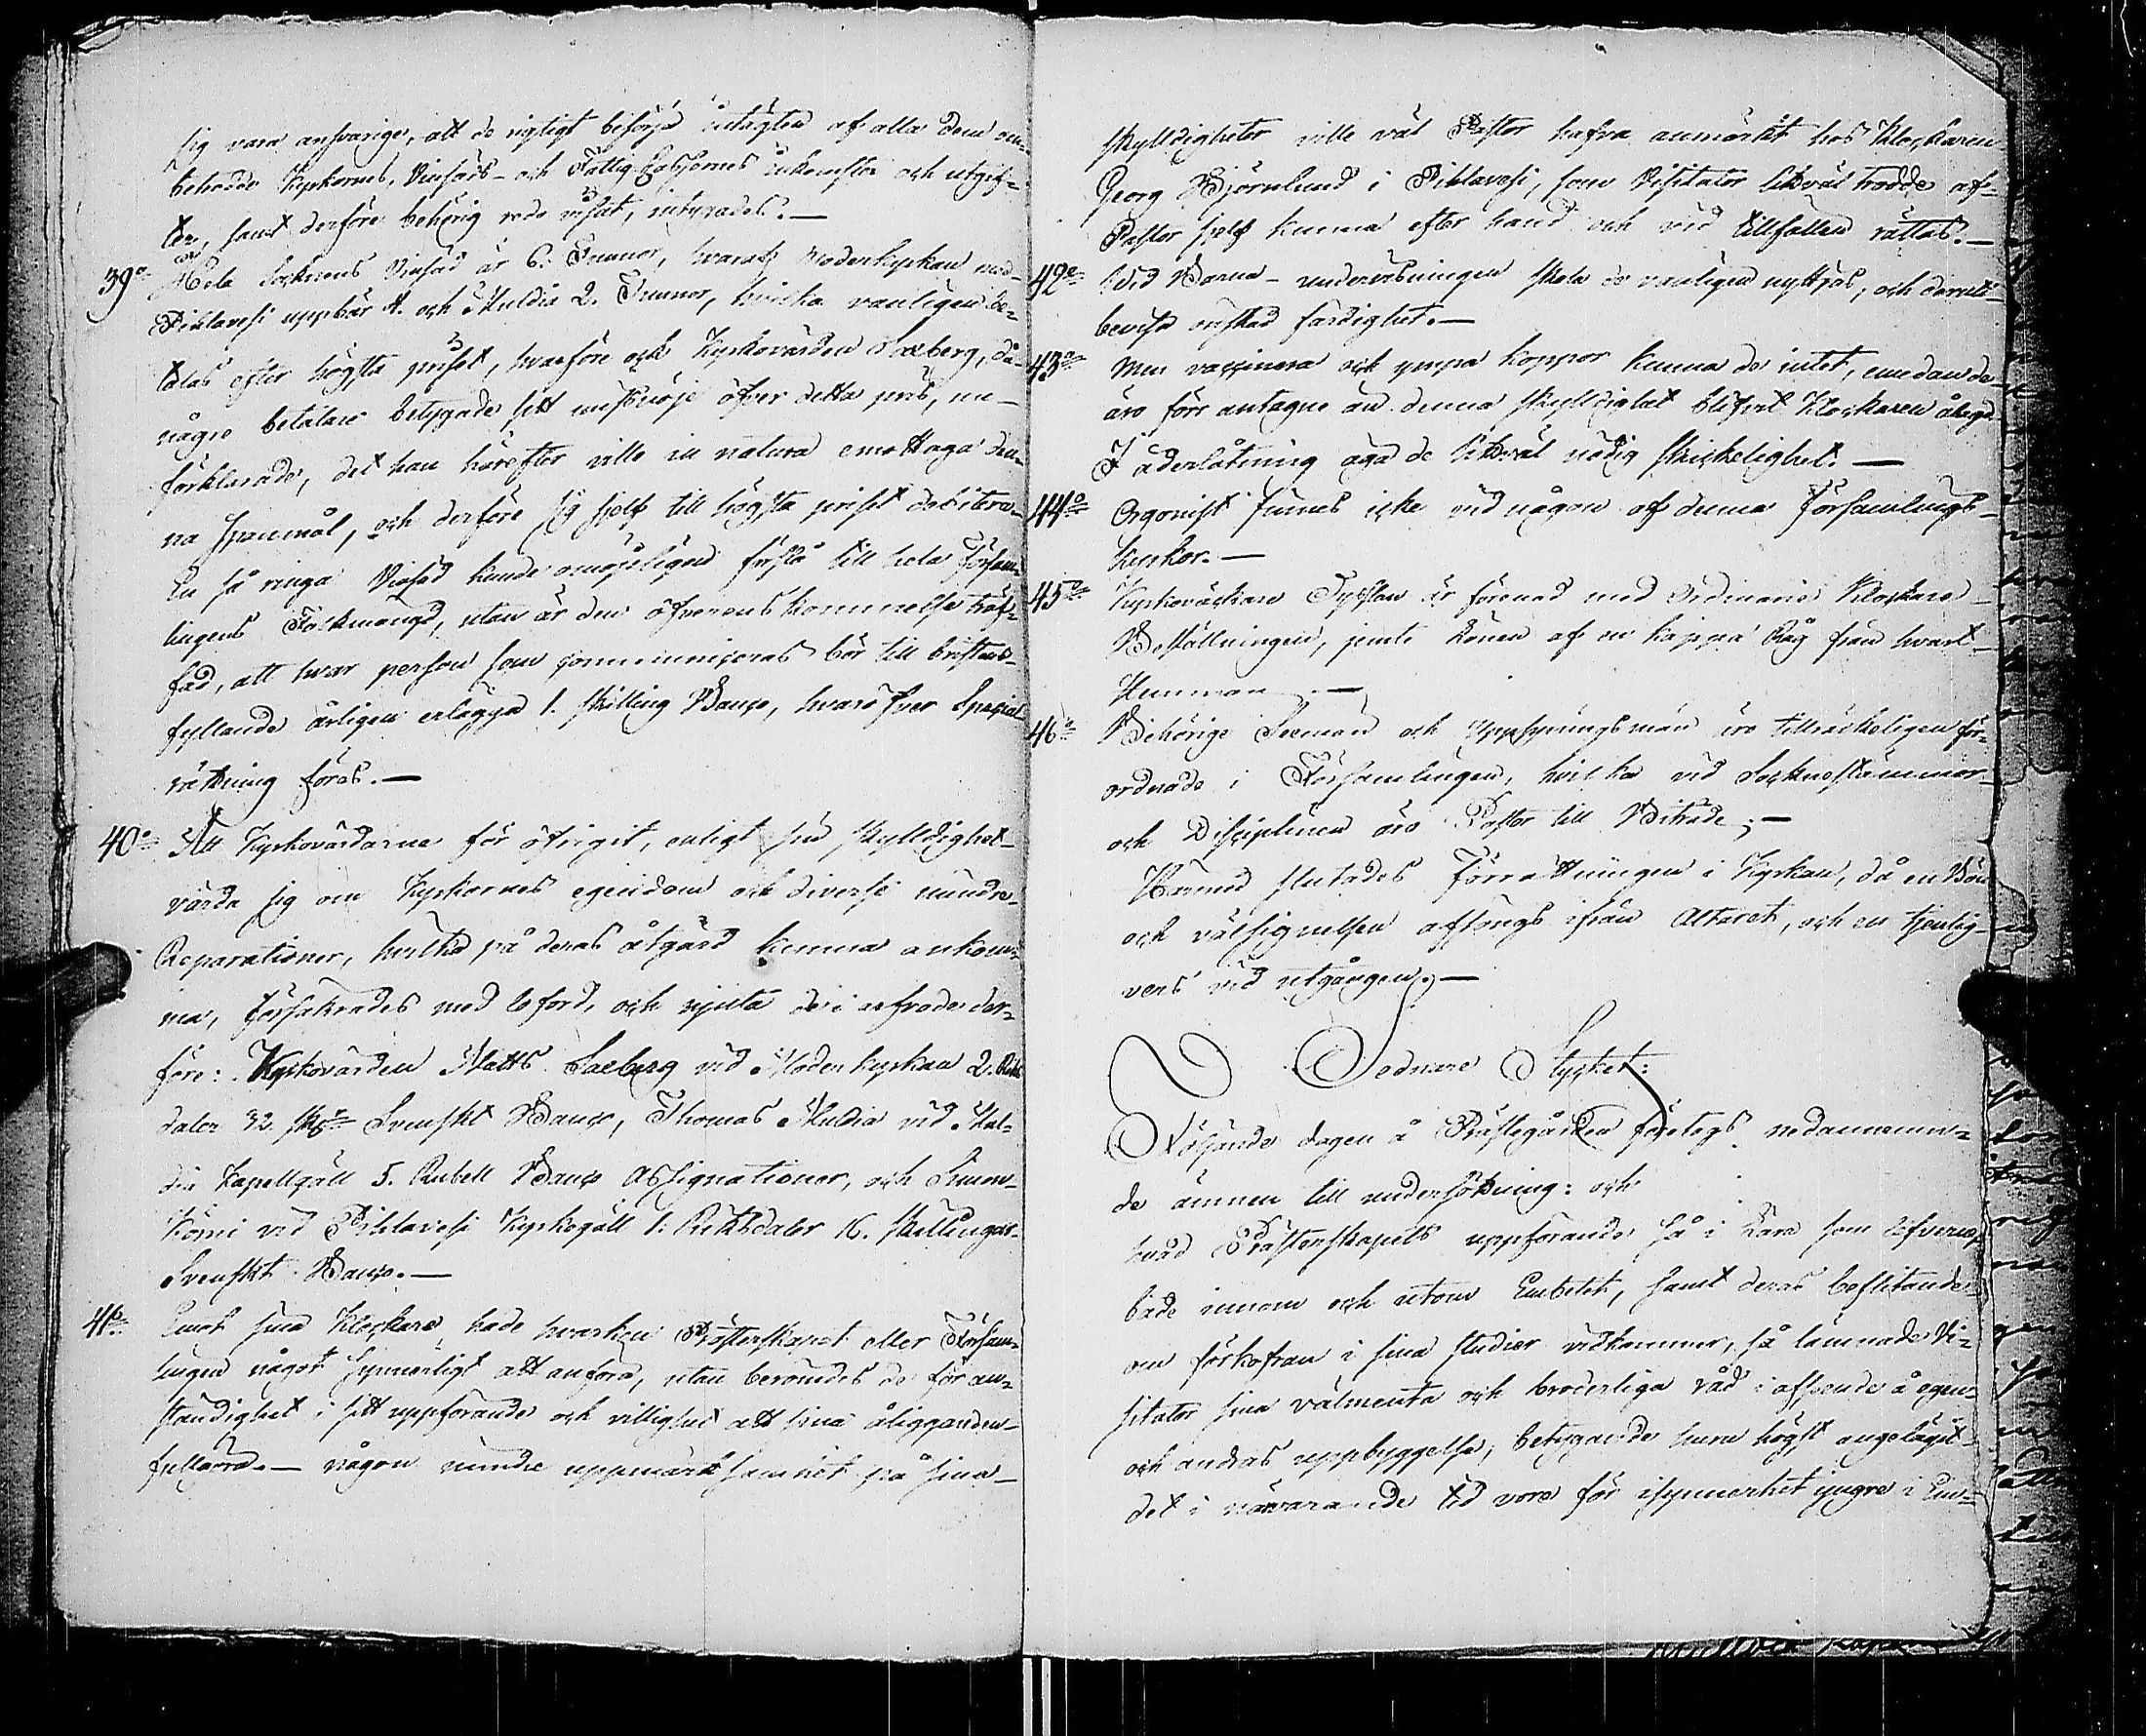 sig vara answarige, att de rigtigt besörja intägten af alla dem om-
betrodde Kyrkornes, Vinsäds- och Fattig Cassornes inkomster och utgif-
ter, samt derföre behörig redo visat, intygades.—
39o Hela Socknens Vinsäd är 6. Tunnor, hvaraf Moderkyrkan
Pihlavesi uppbär 4. och Muldia 2. Tunnor, hvilka vanligen be-
talas efter högsta priset, hvarföre ock Kyrkovärden Saxberg, då
någre betalare betygade sitt missnöje öfver detta pris, nu
förklarade, det han härefter ville in natura emottaga den-
na spanmål, och derföre sig sjelf till högsta priset debitera.—
En så ringa Vinsäd kunde omöjeligen förslå till hela Försam-
lingens Folkmängd, utan är den öfverenskommelse träf-
fad, att hvar person som communiceras bör till bristens
fyllande årligen erlägga 1. skilling Banco, hvaröfver Special
räkning föres.—
40o Att Kyrkovärdarne för öfrigit, enligt sin skylldighet
vårda sig om Kyrkornes egendom och diverse mindre
Reparationer, hvilka på deras åtgärd kunna ankom-
ma, försäkrades med loford, och njuta de i arfvode der-
före: Kyrkovärden Matts Saxberg vid Moderkyrkan 2. Riks
daler 32. sk. Svenskt Banco, Thomas Muldia vid Mul-
dia Kapellgäll 5. Rubell Banco Assignationer, och Simon
Körni vid Pihlavesi Kyrkogäll 1. Riksdaler 16. skillingar
Svenskt Banco.—
41o Emot sina Klockare hade hvarken Prästerskapet eller Försam-
lingen något synnerligt att anföra, utan berömdes de för an-
ständighet i sitt uppförande och villighet att sina åligganden
fullgöra.— någon mindre uppmärksamhet på sina
skylldigheter ville väl Pastor hafva anmärkt hos Klockaren
Georg Björnlund i Pihlavesi, som Visitator likväl trodde af
Pastor sjelf kunna efter hand och vid tillfällen rättas.—
42o Vid Barna-undervisningen skola de vanligen nyttjas, och deruti
bevisa önskad färdighet.—
43o Men vaccinera och ympa koppor kunna de intet, emedan de
äro förr antagne än denna skylldighet blifvit Klockaren ålagd.
I åderlåtning äga de likväl nödig skickelighet.—
44o Organist finnes icke vid någon af denna Församlings
kyrkor.—
45o Kyrkoväckare Sysslan är förenad med Ordinarie Klockare
Beställningen, jemte Lönen af en kappa Råg från hvart
Hemman.—
46o Behörige Sexmän och Uppsyningsmän äro tillräckeligen för-
ordnade i Församlingen, hvilka vid Socknestämmor
och Disciplinen äro Pastor till Biträde;—
Härmed slutades Förrättningen i Kyrkan, då en Bön
och välsignelsen afsöngs ifrån Altaret, och en tjenlig
vers vid utgången;—
Sednare Stycket:
Följande dagen å Prästegården företogs nedannämn-
de ämnen till undersökning: och
hvad Prästerskapets uppförande så i Lära som Lefverne
både innom och utom Embetet, samt deras beflitande
om förkofran i sina studier vidkommer, så lämnade Vi-
sitator sina välmenta och broderliga råd i afseende å egen
och andras uppbyggelse, betygande huru högst angeläget
det i närvarande tid vore för isynnerhet yngre i Em-